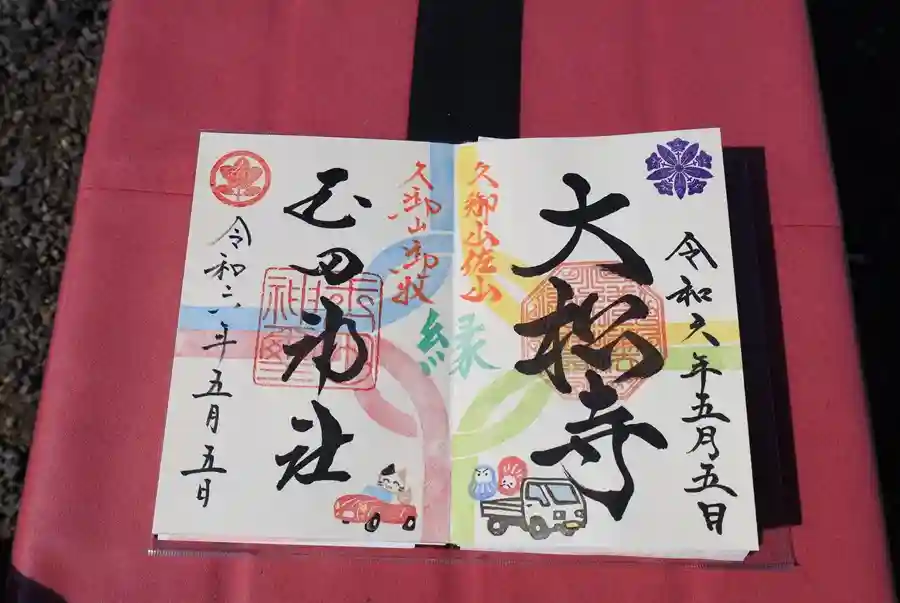 令和六年五月五日
大松寺
久御山佐山
縁
久御山御牧
玉田神社
令和六年五月五日